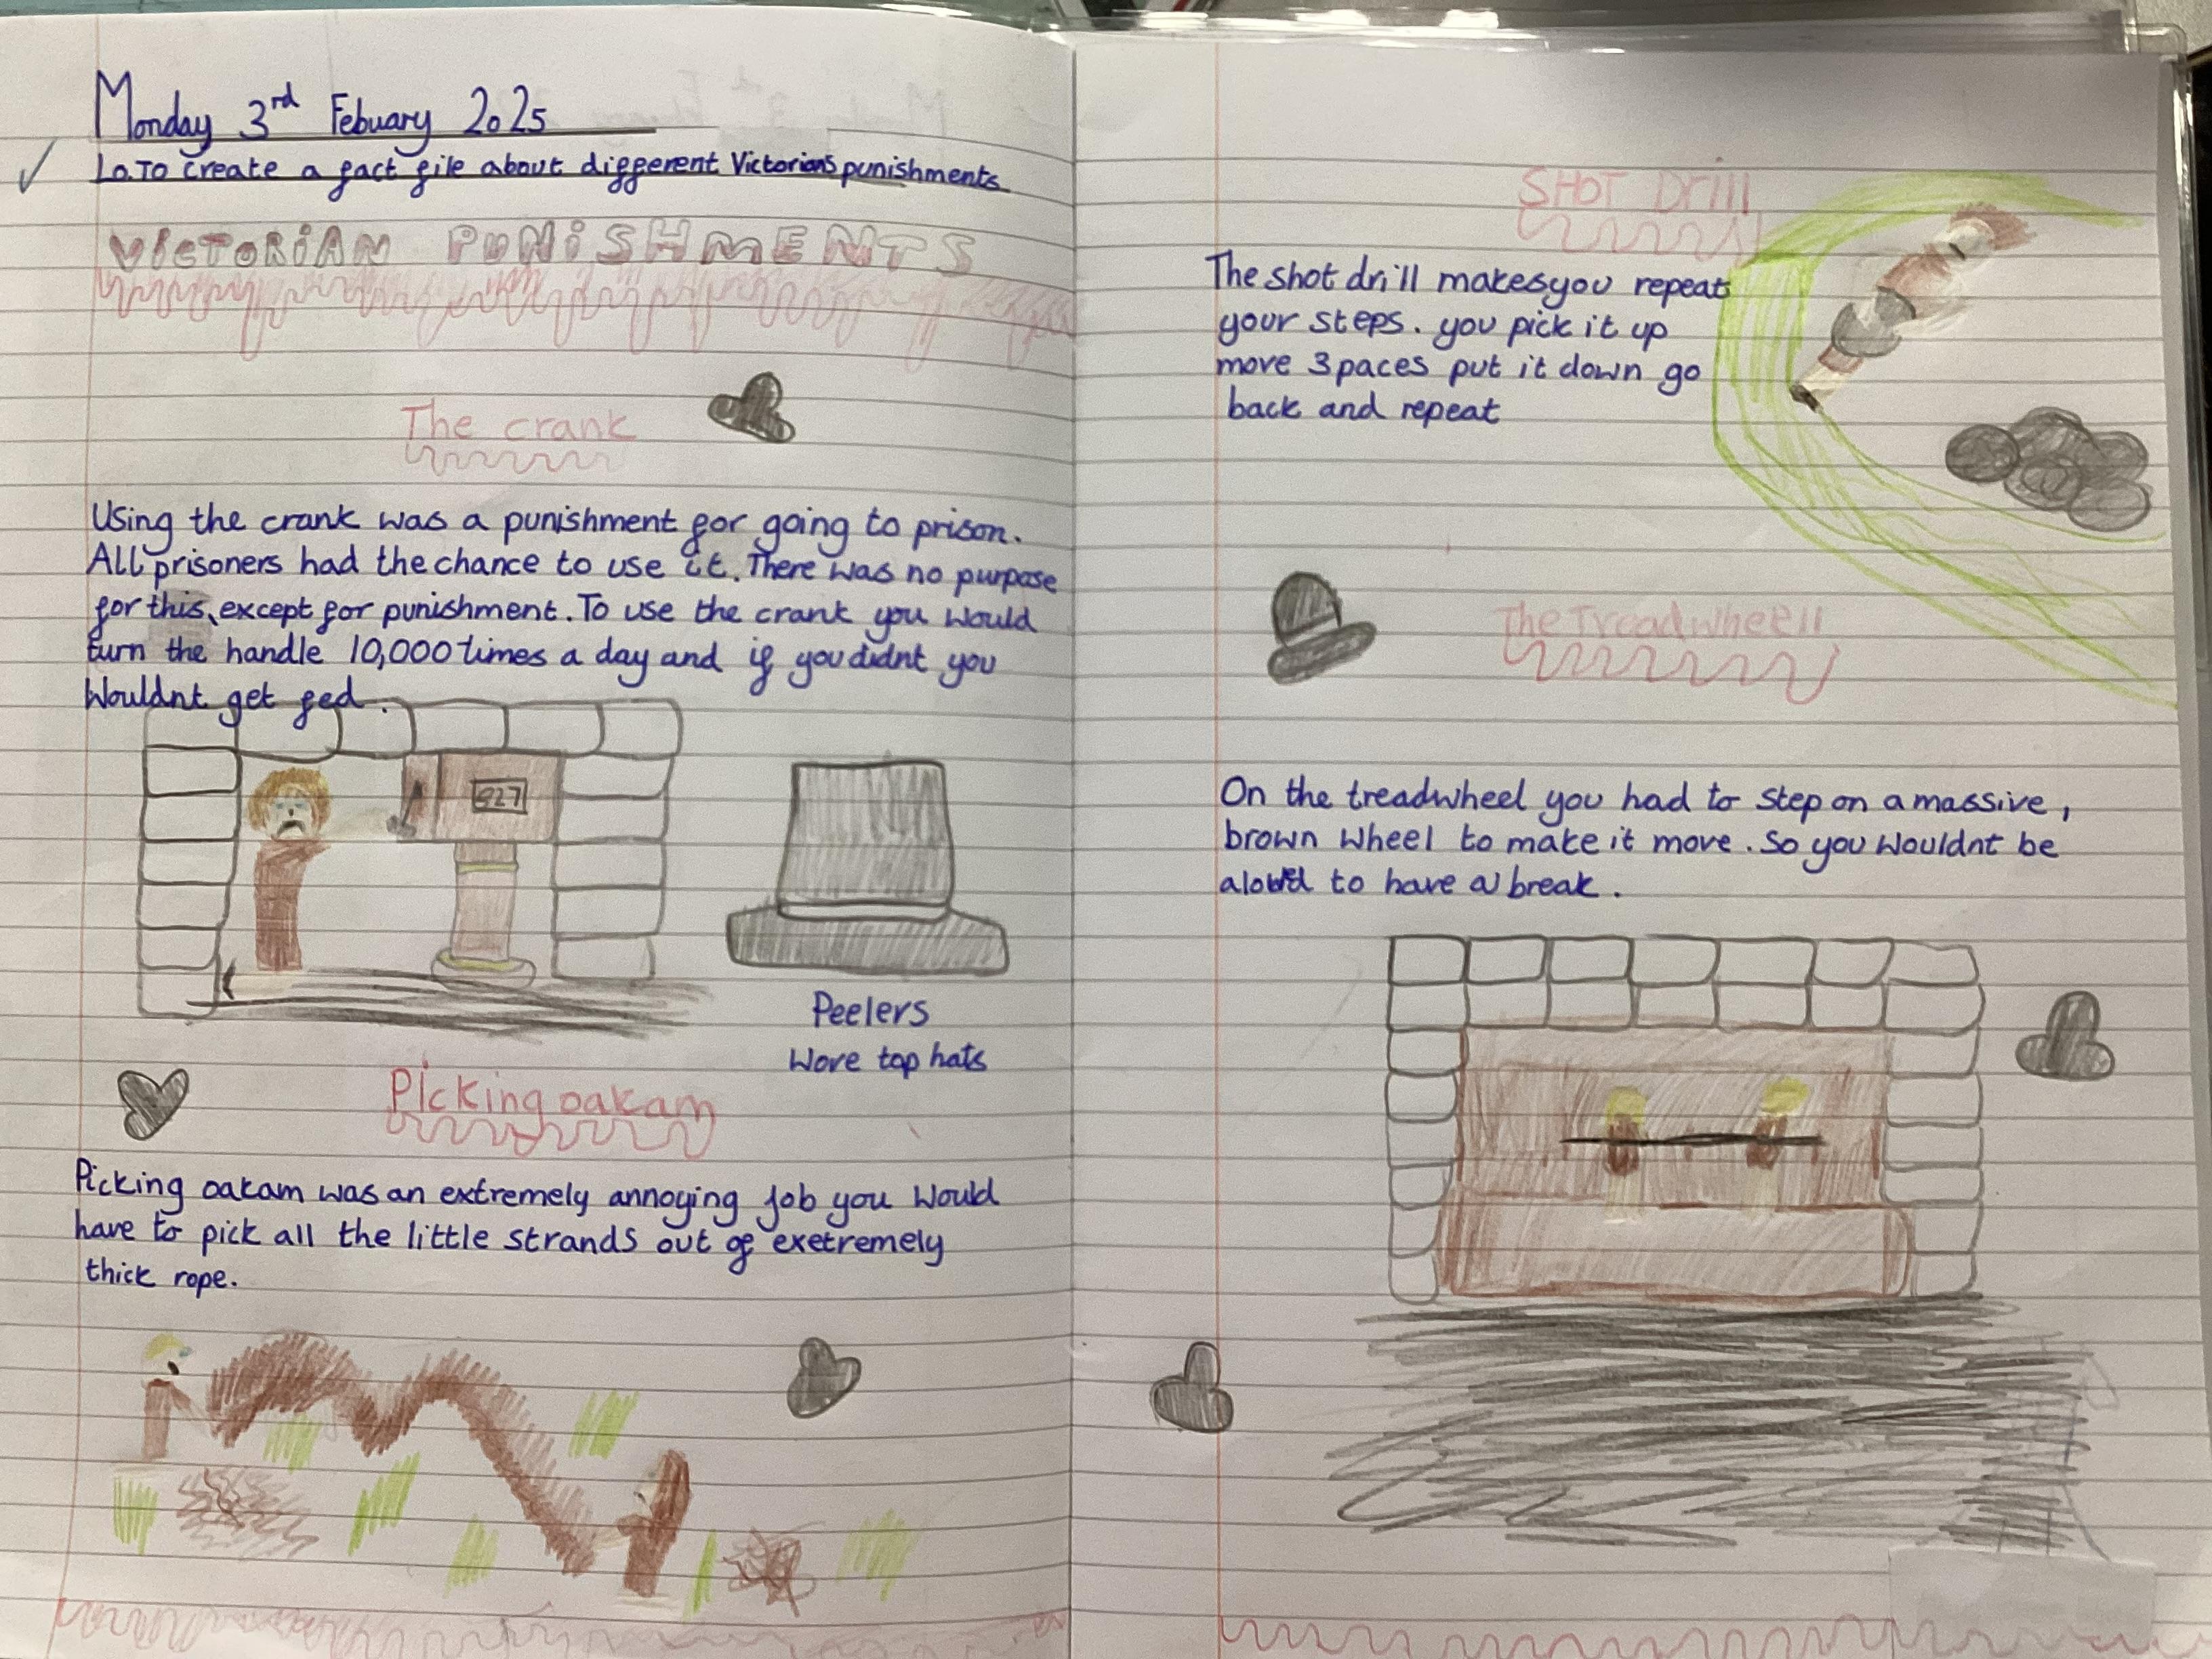 Monday 3rd Febuary 2025
Lo. To create a fact file about different Victorians punishments
VICTORIAN PUNISHMENTS
The crank
Using the crank was a punishment for going to prison.
All prisoners had the chance to use it. There was no purpose
for this, except for punishment. To use the crank you would
turn the handle 10,000 times a day and if you didnt you
wouldnt get fed.
927
Peelers
wore top hats
Picking oakam
Picking oakam was an extremely annoying job you would
have to pick all the little strands out of exetremely
thick rope.
SHOT Drill
The shot drill makes you repeat
your steps. you pick it up
move 3 paces put it down go
back and repeat
The Treadwheell
On the treadwheel you had to step on a massive,
brown wheel to make it move. So you wouldnt be
to have a break.